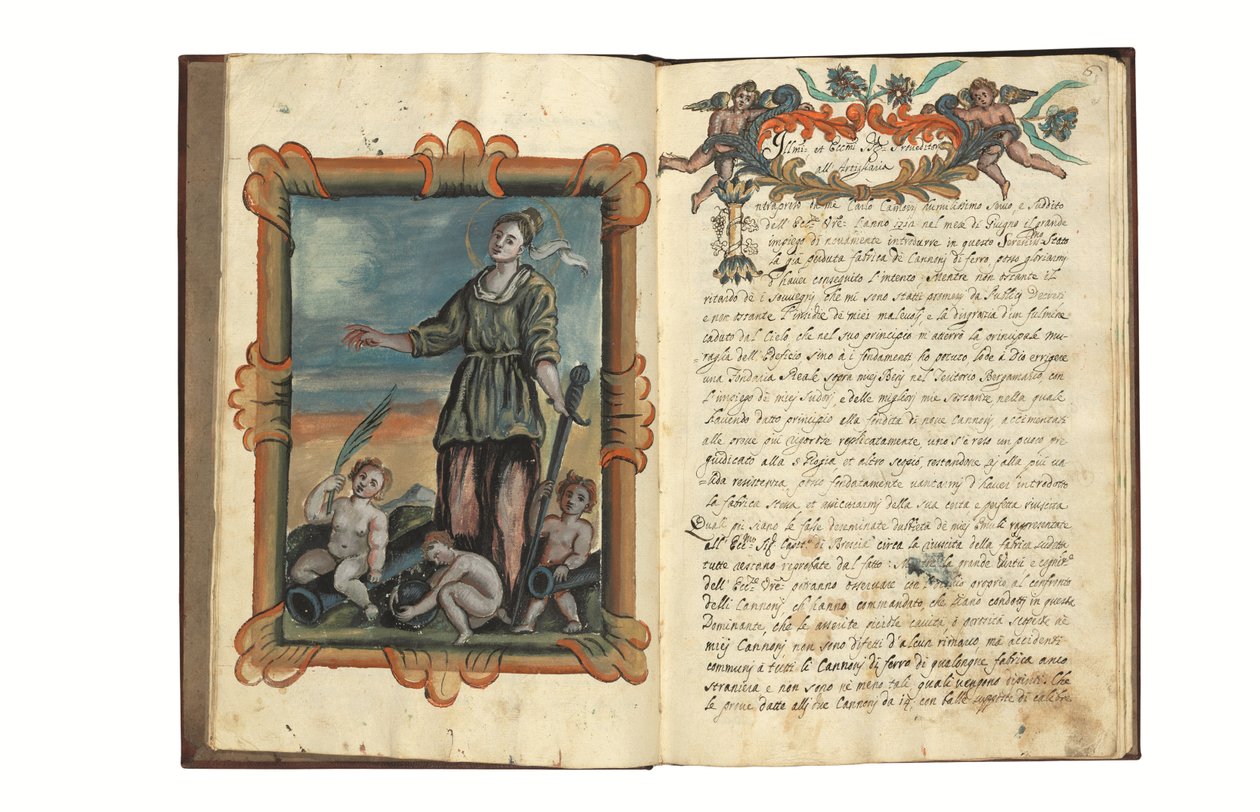 6
Illmi: et Eccmi SSri: Proveditori
all' Artigliaria
Intrapreso da me Carlo Camozzi humilissimo servo, e suddito
dell' Eccze Vre: l'anno nel mese di Giugno il grande
impiego di novamente introdurre in questo Serenismo Stato
la già perduta fabrica de Cannonj di ferro, posso gloriarmi
d'haver conseguito l'intento; Mentre non ostante il
ritardo de i souvegni, che mi sono statti promessi da Publicj Decreti
e non ostante l'insidie de miei malevoli, e la disgrazia d'un fulmine
caduto dal Cielo, che nel suo principio m'atterrò la principale mu-
raglia dell' Edeficio sino à i fondamenti ho potuto lode à Dio errigere
una Fondaria Reale sopra miej Benj nel Teritorio Bergamasco, con
l'impiego de miej Sudorj, e delle migliorj mie sostanze nella quale
havendo datto principio alla fondita di nove Cannonj accimentati
alle prove più rigorose replicatamente uno s'è reso un puoco pre-
giudicato alla Pioggia et altro scopiò, restandone alla più va-
lida resistenza posso fondatamente vantarmj d'haver introdotto
la fabrica stessa et assicurarmj della sua certa e perfeta riuscita
Quali poi siano le false deseminate dubbietà de miej Emuli rappresentate
all' Eccmo Sigr Capitº di Brescia circa la riuscita della fabrica sudetta
tutte restano reprobate dal fatto: Mentre la grande virtù e cognitne
dell' Eccze Vre potranno osservare con proprio al confronto
delli Cannonj ch' hanno commandato, che siano condottj in questa
Dominante, che le asserite picciole cavità ò porosità scoperte nè
miej Cannonj non sono difetti d'alcun rimarco mà accidenti
communj à tutti li Cannonj di ferro di qualonque fabrica anco
straniera e non sono nè meno tali quali vengono dipinti. Che
le prove datte allj due Cannonj da 14, con balle supposte di calibre